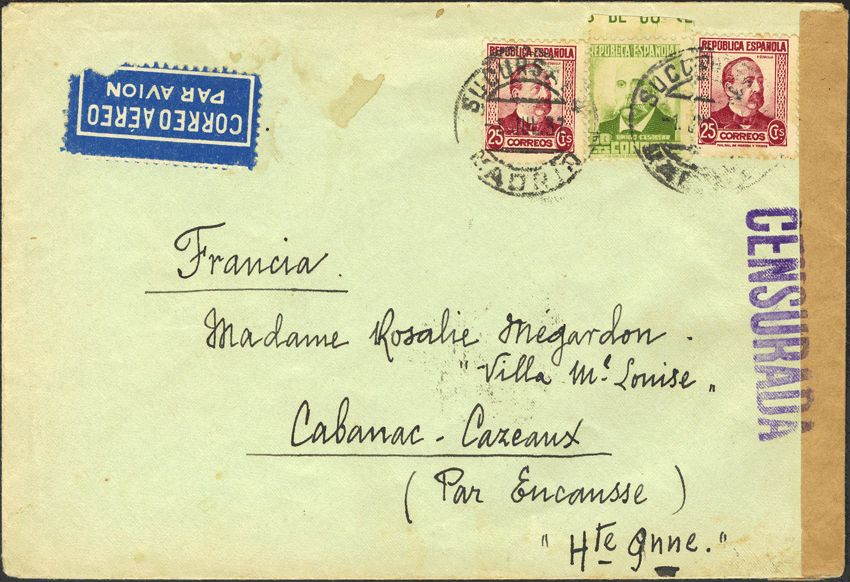 CORREO AEREO
PAR AVION
REPUBLICA ESPAÑOLA
25 Cts
CORREOS
REPUBLICA ESPAÑOLA
EMILIO CASTELAR
REPUBLICA ESPAÑOLA
25 Cts
CORREOS
MADRID
CENSURADA
Francia.
Madame Rosalie Mégardon.
"Villa Me Louise"
Cabanac - Cazeaux
(Par Encausse)
"Hte Gnne."